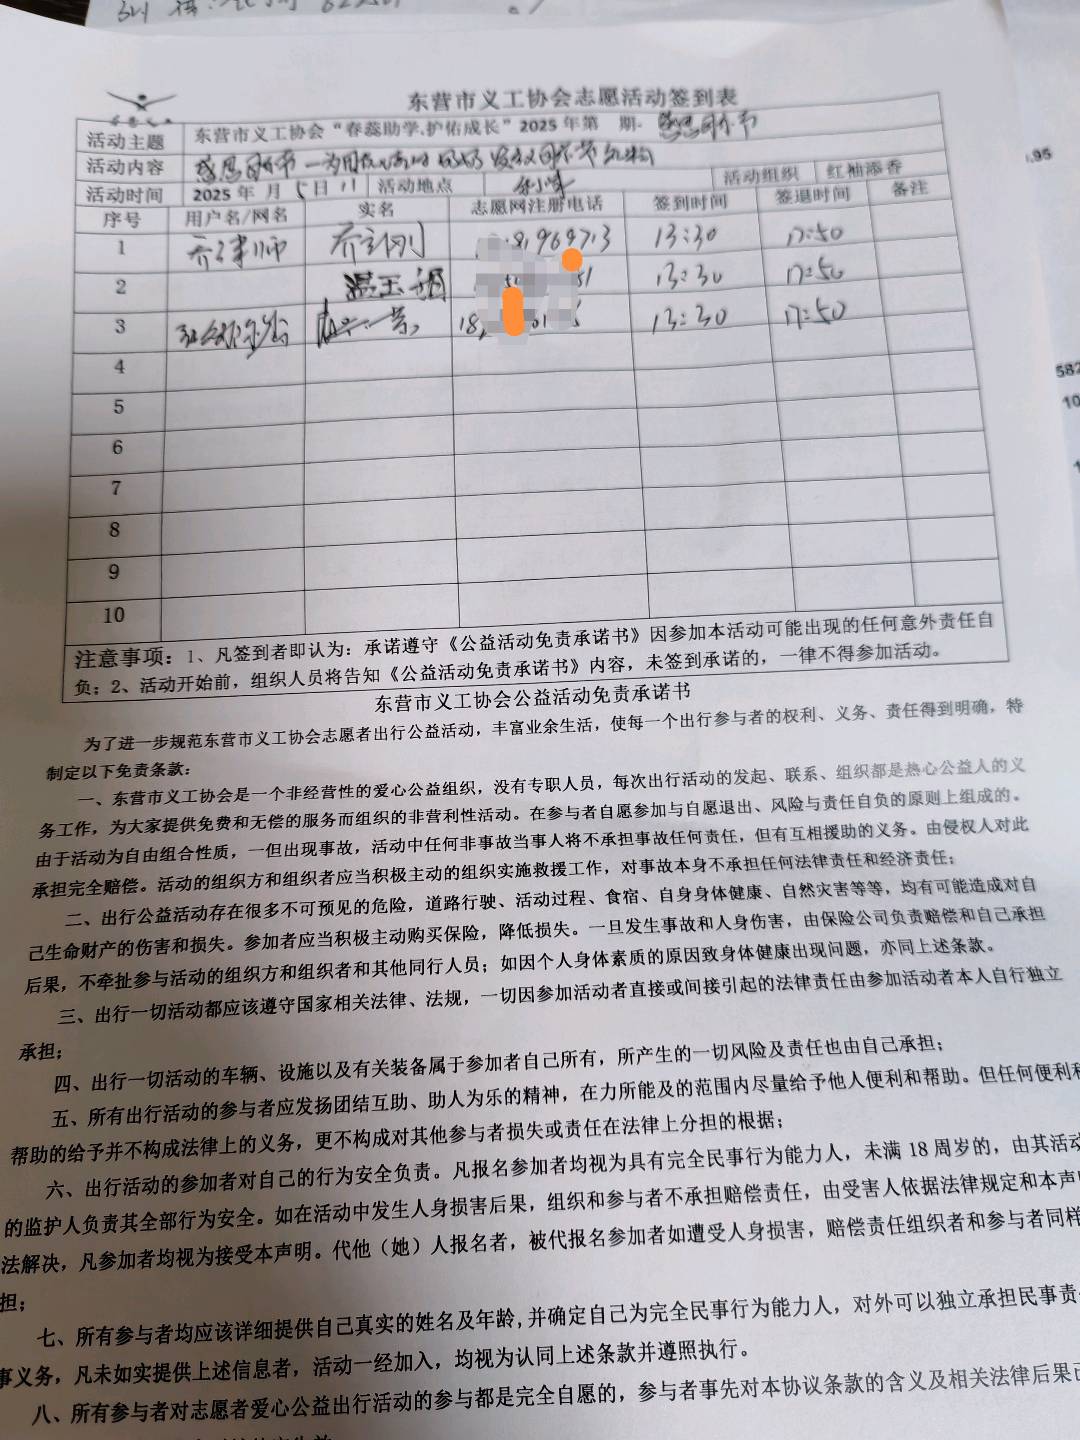 东营市义工协会志愿活动签到表
活动主题 东营市义工协会“春蕊助学.护佑成长”2025年第 期.
活动内容
活动时间 2025年 月5日 11 活动地点 活动组织 红袖添香
序号 用户名/网名 实名 志愿网注册电话 签到时间 签退时间 备注
1 乔律师 13:30 17:50
2 温玉 13:30 17:50
3 13:30 17:50
4
5
6
7
8
9
10
注意事项：1、凡签到者即认为：承诺遵守《公益活动免责承诺书》因参加本活动可能出现的任何意外责任自
负；2、活动开始前，组织人员将告知《公益活动免责承诺书》内容，未签到承诺的，一律不得参加活动。
东营市义工协会公益活动免责承诺书
为了进一步规范东营市义工协会志愿者出行公益活动，丰富业余生活，使每一个出行参与者的权利、义务、责任得到明确，特
制定以下免责条款：
一、东营市义工协会是一个非经营性的爱心公益组织，没有专职人员，每次出行活动的发起、联系、组织都是热心公益人的义
务工作，为大家提供免费和无偿的服务而组织的非营利性活动。在参与者自愿参加与自愿退出、风险与责任自负的原则上组成的。
由于活动为自由组合性质，一但出现事故，活动中任何非事故当事人将不承担事故任何责任，但有互相援助的义务。由侵权人对此
承担完全赔偿。活动的组织方和组织者应当积极主动的组织实施救援工作，对事故本身不承担任何法律责任和经济责任；
二、出行公益活动存在很多不可预见的危险，道路行驶、活动过程、食宿、自身身体健康、自然灾害等等，均有可能造成对自
己生命财产的伤害和损失。参加者应当积极主动购买保险，降低损失。一旦发生事故和人身伤害，由保险公司负责赔偿和自己承担
后果，不牵扯参与活动的组织方和组织者和其他同行人员；如因个人身体素质的原因致身体健康出现问题，亦同上述条款。
三、出行一切活动都应该遵守国家相关法律、法规，一切因参加活动者直接或间接引起的法律责任由参加活动者本人自行独立
承担；
四、出行一切活动的车辆、设施以及有关装备属于参加者自己所有，所产生的一切风险及责任也由自己承担；
五、所有出行活动的参与者应发扬团结互助、助人为乐的精神，在力所能及的范围内尽量给予他人便利和帮助。但任何便利和
帮助的给予并不构成法律上的义务，更不构成对其他参与者损失或责任在法律上分担的根据；
六、出行活动的参加者对自己的行为安全负责。凡报名参加者均视为具有完全民事行为能力人，未满18周岁的，由其活动
的监护人负责其全部行为安全。如在活动中发生人身损害后果，组织和参与者不承担赔偿责任，由受害人依据法律规定和本声
法解决，凡参加者均视为接受本声明。代他（她）人报名者，被代报名参加者如遭受人身损害，赔偿责任组织者和参与者同样
担；
七、所有参与者均应该详细提供自己真实的姓名及年龄，并确定自己为完全民事行为能力人，对外可以独立承担民事责
事义务，凡未如实提供上述信息者，活动一经加入，均视为认同上述条款并遵照执行。
八、所有参与者对志愿者爱心公益出行活动的参与都是完全自愿的，参与者事先对本协议条款的含义及相关法律后果已